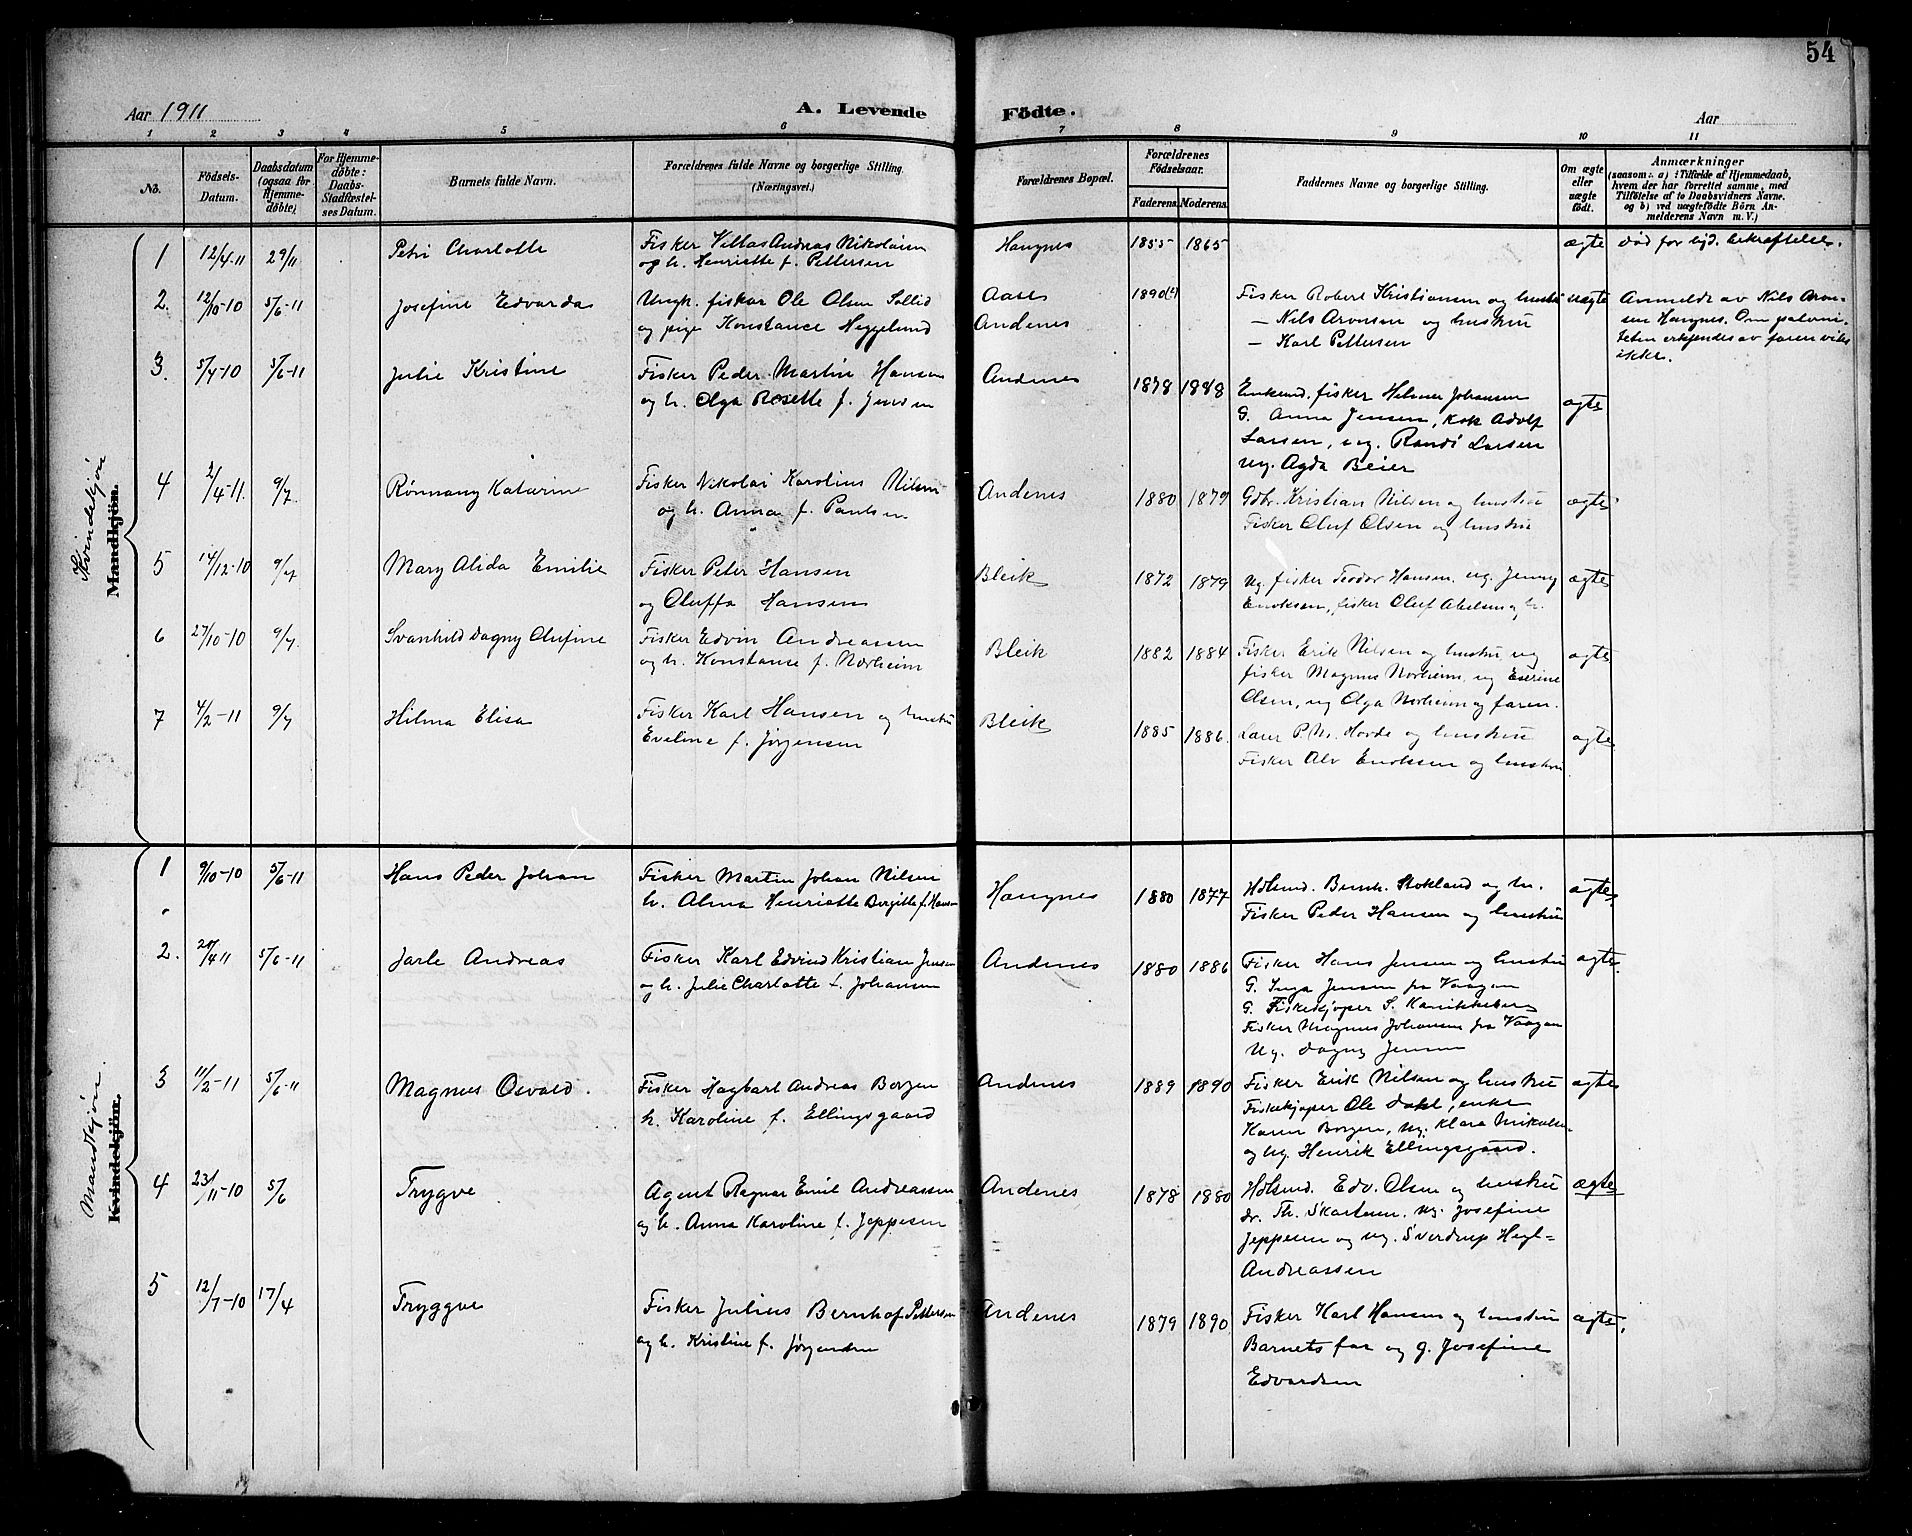 54
Aar 1911
A. Levende Födte.
Aar
1 2 3 4 5 6 7 8 9 10 11
No.
Födsels-Datum.
Daabsdatum (ogsaa for Hjemmedöbte)
For Hjemmedöbte: Daabs-Stadfæstelses Datum.
Barnets fulde Navn.
Forældrenes fulde Navne og borgerlige Stilling.
(Næringsvei.)
Forældrenes Bopæl.
Forældrenes Födselsaar.
Faderens. Moderens.
Faddernes Navne og borgerlige Stilling.
Om ægte eller uægte födt.
Anmærkninger
(saasom: a) i Tilfælde af Hjemmedaab,
hvem der har forrettet samme, med
Tilföielse af to Daabsvidners Navne,
og b) ved uægtefödte Börn Anmelderens Navn m. V.)
Kvindekjön
Mandkjön.
1 12/4-11 29/11 Petri Charlotte Fisker Villas Andreas Nikolaisen 1855 1865 ægte død før bekræftelse.
og h. Henriette f. Pettersen
2. 12/10-10 5/6-11 Josefine Edvarda Ungk. fisker Ole Olsen Sollid 1890 Fisker Robert Kristiansen og hustru uægte Anmeldt av Nils Aron-
og pige Konstance Heggelund Andenes — Nils Aronsen og hustru sen Haugnes. Om
— Karl Pettersen erkjendes av faren vides
ikke.
3. 5/4-10 5/6-11 Julie Kristine Fisker Peder Martin Hansen Andenes 1878 1888 Enkemd. fisker Helmer Johansen ægte
og h. Olga Rosette f. Jensen G. Anna Jensen, kok Adolf
Larsen, ug. Randi Larsen
ug. Agda Beier
4 2/4-11. 9/7 Rønnaug Katarine Fisker Nikolai Karolius Nilsen Andenes 1880 1879 Gdbr. Kristian Nilsen og hustru ægte
og h. Anna f. Paulsen Fisker Oluf Olsen og hustru
5 14/12-10 9/7 Mary Alida Emilie Fisker Peter Hansen Bleik 1872 1879 Ug. fisker Teodor Hansen, ug. Jenny ægte
og Oluffa Hansen Enoksen, fisker Oluf Abelsen og h.
6 27/10-10 9/7. Svanhild Dagny Olufine Fisker Edvin Andreassen Bleik 1882 1884 Fisker Erik Nilsen og hustru, ug ægte
og h. Konstanse f. Norheim fisker Magnus Norheim, ug
Olsen, ug Olga Norheim og faren.
7 4/2-11 9/7 Hilma Elisa Fisker Karl Hansen og hustru Bleik 1885 1886. Lærer P. M. Horde og hustru ægte
Eveline f. Jørgensen Fisker Alv Enoksen og hustru
Mandkjön.
Kvindekjön.
1 9/10-10 5/6-11 Hans Peder Johan Fisker Martin Johan Nilsen Haugnes 1880 1877 Hdlsmd. Bernh. Stokland og h. ægte
h. Alma Henriette Bergitte f. Hansen Fisker Peder Hansen og hustru
2. 20/4 11 5/6-11 Jarle Andreas Fisker Karl Edvind Kristian Jensen Andenes 1880 1886 Fisker Hans Jensen og hustru ægte.
og h. Julie Charlotte f. Johansen G. Inga Jensen fra Vaagan
G. Fiskekjøper S. Kanikkeberg
Fisker Magnus Johansen fra Vaagan
Ug. Dagny Jensen
3 11/2-11 5/6-11 Magnus Osvald. Fisker Hagbart Andreas Borgen Andenes 1889 1890 Fisker Erik Nilsen og hustru ægte
h. Karoline f. Ellingsgaard Fiskekjøper Ole Dahl, enke
Karen Borgen, ug. Klara
og ug. Henrik Ellingsgaard.
4 23/11-10 5/6 Trygve Agent Ragnar Emil Andreassen Andenes 1878 1880 Hdlsmd. Edv. Olsen og hustru ægte
og h. Anna Karoline f. Jeppesen dr. Th. Skartsen, ug. Josefine
Jeppesen og ug. Sverdrup
Andreassen
5 12/7-10 17/4 Tryggve Fisker Julius Bernhof Pettersen Andenes 1879 1890 Fisker Karl Hansen og hustru ægte.
og h. Kristine f. Jørgensen Barnets far og g. Josefine
Edvardsen